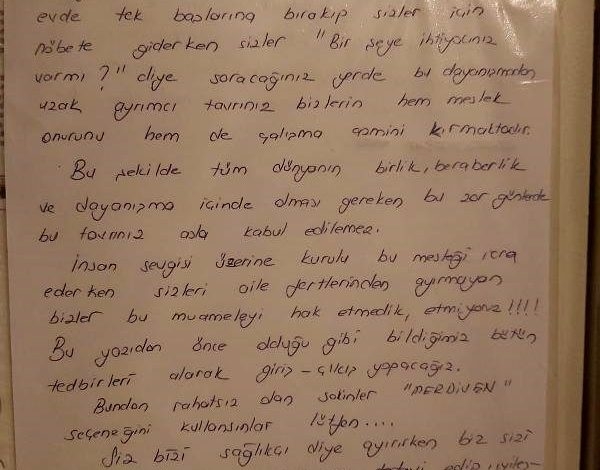 evde tek başlarına bırakıp sizler için
nöbete giderken sizler "Bir şeye ihtiyacınız
varmı?" diye soracağınız yerde bu dayanışmadan
uzak ayrımcı tavrınız bizlerin hem meslek
onurunu hem de çalışma azmini kırmaktadır.
Bu şekilde tüm dünyanın birlik, beraberlik
ve dayanışma içinde olması gereken bu zor günlerde
bu tavrınız asla kabul edilemez.
İnsan sevgisi üzerine kurulu bu mesleği icra
ederken sizleri aile fertlerinden ayırmayan
bizler bu muameleyi hak etmedik, etmiyoruz!!!!
Bu yazıdan önce olduğu gibi bildiğimiz bütün
tedbirleri alarak giriş-çıkış yapacağız.
Bundan rahatsız olan sakinler "MERDİVEN"
seçeneğini kullansınlar lütfen....
Siz bizi sağlıkçı diye ayırırken biz sizi